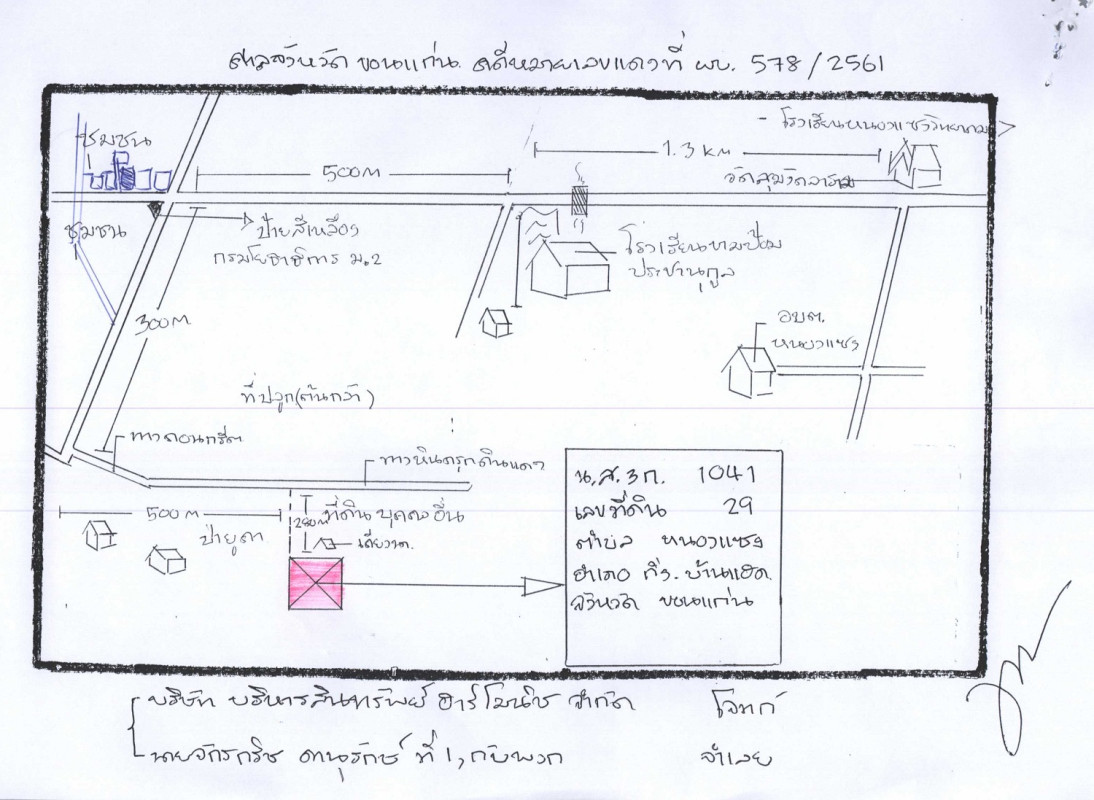 ศาลจังหวัด ขอนแก่น. คดีหมายเลขแดงที่ ผบ. 578/2561
- โรงเรียนหนองแซงวิทยาคม
ชุมชน
500M
1.3 KM
วัดสุมังคลาราม
ชุมชน
ป้ายสีเหลือง
กรมโยธาธิการ ม.2
โรงเรียน
ประชานุกูล
300M
อบต.
หนองแซง
ที่ปลูก(ต้นกล้า)
ทางคอนกรีต
ทางหินลูกดินแดง
500 M
ป่ายูคา
280M
ที่ดินบุคคลอื่น
น.ส.3ก. 1041
เลขที่ดิน 29
ตำบล หนองแซง
อำเภอ กิ่ง.บ้านแฮด
จังหวัด ขอนแก่น
บริษัท บริหารสินทรัพย์ ฮาร์โมนิช จำกัด โจทก์
นายจักรกริช ดานุรักษ์ ที่ 1, กับพวก จำเลย